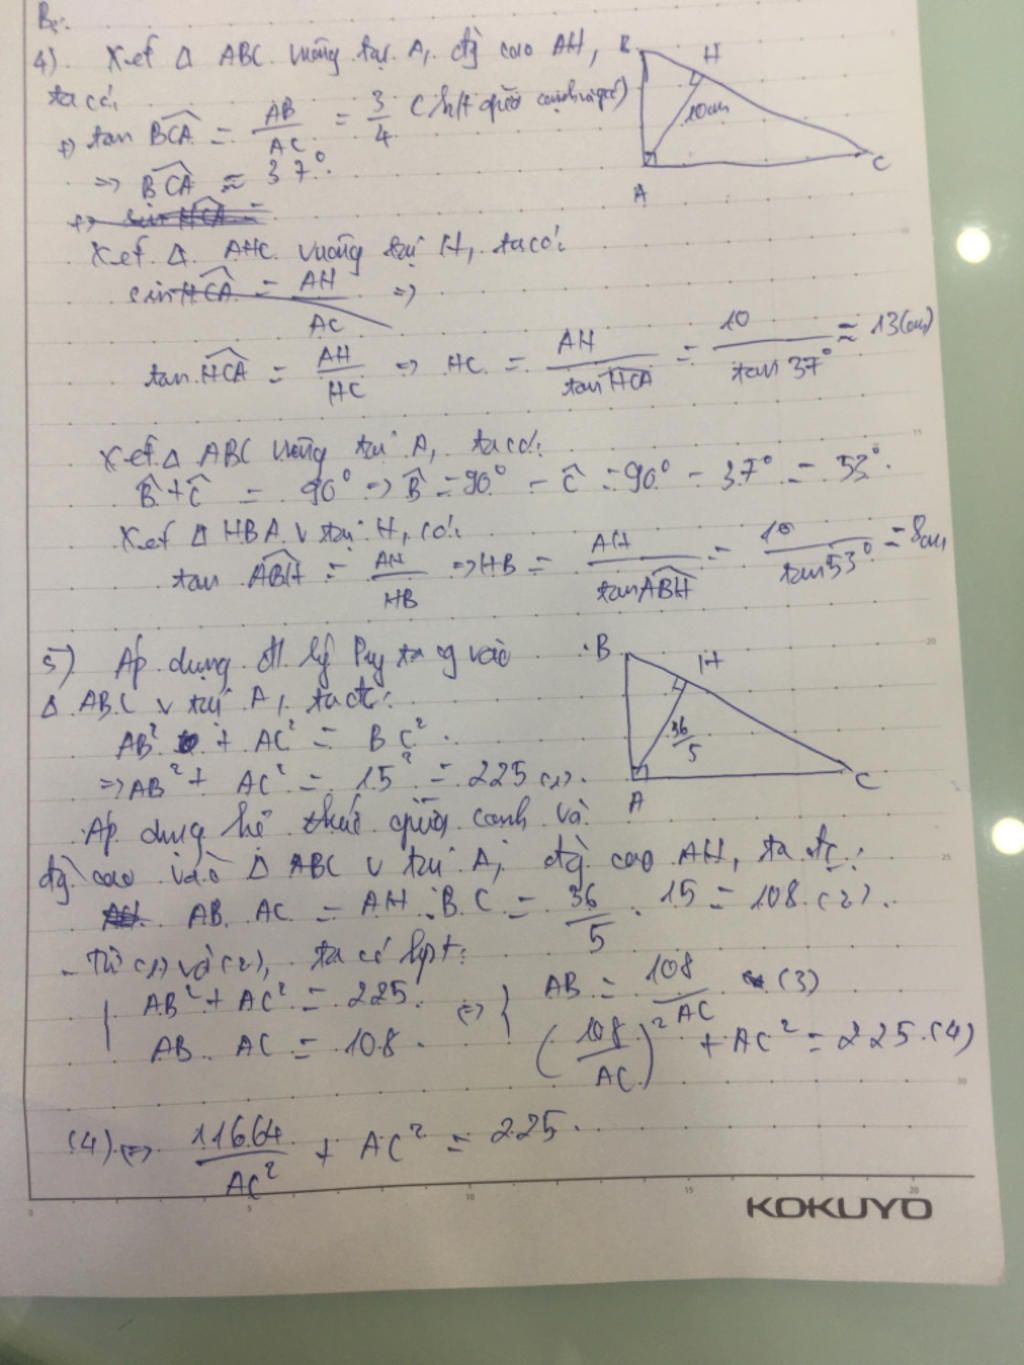 B
4) Xét Δ ABC vuông tại A, đg cao AH,
ta có:
+) tan BCA = AB/AC = 3/4 (hệ thức giữa cạnh và góc)
=> BCA ≈ 37°
Xét Δ AHC vuông tại H, ta có:
sin HCA = AH/AC =>
tan HCA = AH/HC => HC = AH/tan HCA = 10/tan 37° ≈ 13(cm)
Xét Δ ABC vuông tại A, ta có:
B + C = 90° => B = 90° - C = 90° - 37° = 53°.
Xét Δ HBA v tại H, có:
tan ABH = AH/HB => HB = AH/tan ABH = 10/tan 53° = 8cm
B
H
10cm
A
C
5) Áp dụng đl lý Py ta g vào
Δ ABC v tại A, ta có:
AB² + AC² = BC².
=> AB² + AC² = 15² = 225 (1).
Áp dụng hệ thức giữa cạnh và
đg cao vào Δ ABC v tại A, đg cao AH, ta đc:
AB. AC = AH. BC = 36/5 . 15 = 108 (2).
- Từ (1) và (2), ta có hpt:
{ AB² + AC² = 225. <=> { AB = 108/AC (3)
AB. AC = 108. (108/AC)² + AC² = 225. (4)
(4) <=> 11664/AC² + AC² = 225.
B
H
36/5
A
C
0 5 10 15 20
KOKUYO